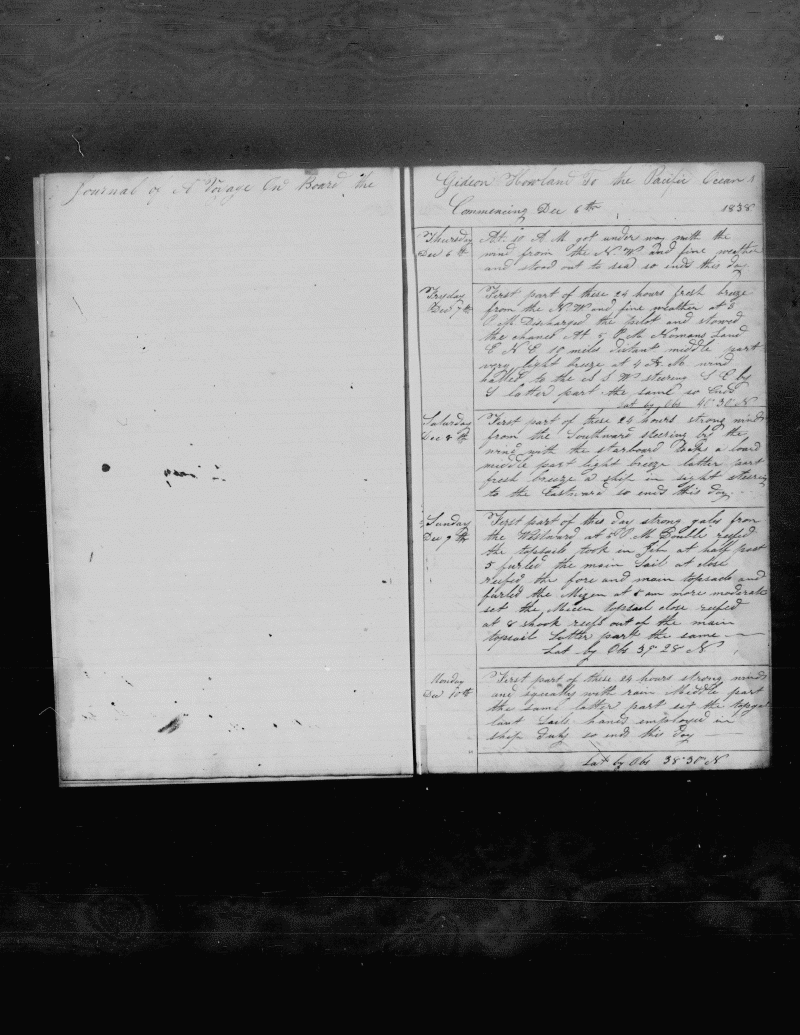 Journal of A Voyage On Board the
Gideon Howland To the Pacific Ocean
Commencing Dec 6th 1838
Thursday
Dec 6th
At 10 A M got under way with the
wind from the N. W. and fine weather
and stood out to sea so ends this day
Fryday
Dec 7th
First part of these 24 hours fresh breeze
from the N W and fine weather at 3
P. M. Discharged the pilot and stowed
the chanes At 5 P. M. Nomans Land
E N E 10 miles distant middle part
very light breeze at 4 A. M. wind
hailed to the S S W steering S E by
S latter part the same so Ends
Lat by Obs 40 30 N
Saturday
Dec 8th
First part of these 24 hours strong winds
from the Southward steering by the
wind with the starboard Tacks a board
middle part light breeze latter part
fresh breeze a ship in sight steering
to the Eastward so ends this day
Sunday
Dec 9th
First part of this day strong gales from
the Westward at P. M. Double reefed
the topsails took in Jib at half past
5 furled the main Sail at close
reefed the fore and main topsails and
furled the Mizen at 5 am more moderate
set the Mizen topsail close reefed
at 8 shook reefs out of the main
topsail Latter part the same
Lat by Obs 39 28 N
Monday
Dec 10th
First part of these 24 hours strong winds
and squally with rain Middle part
the same latter part set the topgal
lant Sails hands employed in
ship Duty so ends this day
Lat by Obs 38 30 N